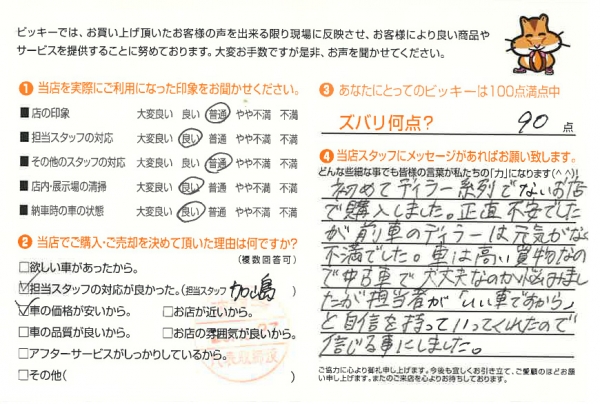 ビッキーでは、お買い上げ頂いたお客様の声を出来る限り現場に反映させ、お客様により良い商品や
サービスを提供することに努めております。大変お手数ですが是非、お声を聞かせてください。
❶ 当店を実際にご利用になった印象をお聞かせください。
■ 店の印象 大変良い 良い 普通 やや不満 不満
■ 担当スタッフの対応 大変良い 良い 普通 やや不満 不満
■ その他のスタッフの対応 大変良い 良い 普通 やや不満 不満
■ 店内・展示場の清掃 大変良い 良い 普通 やや不満 不満
■ 納車時の車の状態 大変良い 良い 普通 やや不満 不満
❷ 当店でご購入・ご売却を決めて頂いた理由は何ですか?
(複数回答可)
□欲しい車があったから。
☑担当スタッフの対応が良かった。(担当スタッフ 加嶋 )
☑車の価格が安いから。 □お店が近いから。
□車の品質が良いから。 □お店の雰囲気が良いから。
□アフターサービスがしっかりしているから。
□その他( )
❸ あなたにとってのビッキーは100点満点中
ズバリ何点? 90 点
❹ 当店スタッフにメッセージがあればお願い致します。
どんな些細な事でも皆様の言葉が私たちの「力」になります(^^)/
初めてディラー系列でないお店
で購入しました。正直不安でした
が前車のディラーは元気がなく
不満でした。車は高い買物なの
で中古車で大丈夫なのか悩みまし
たが担当者が「いい車ですから」
と自信を持っていってくれたので
信じる事にしました。
ご協力に心より御礼申し上げます。今後も宜しくお引き立て、ご愛顧のほどお願
い申し上げます。またのご来店を心よりお待ちしております。